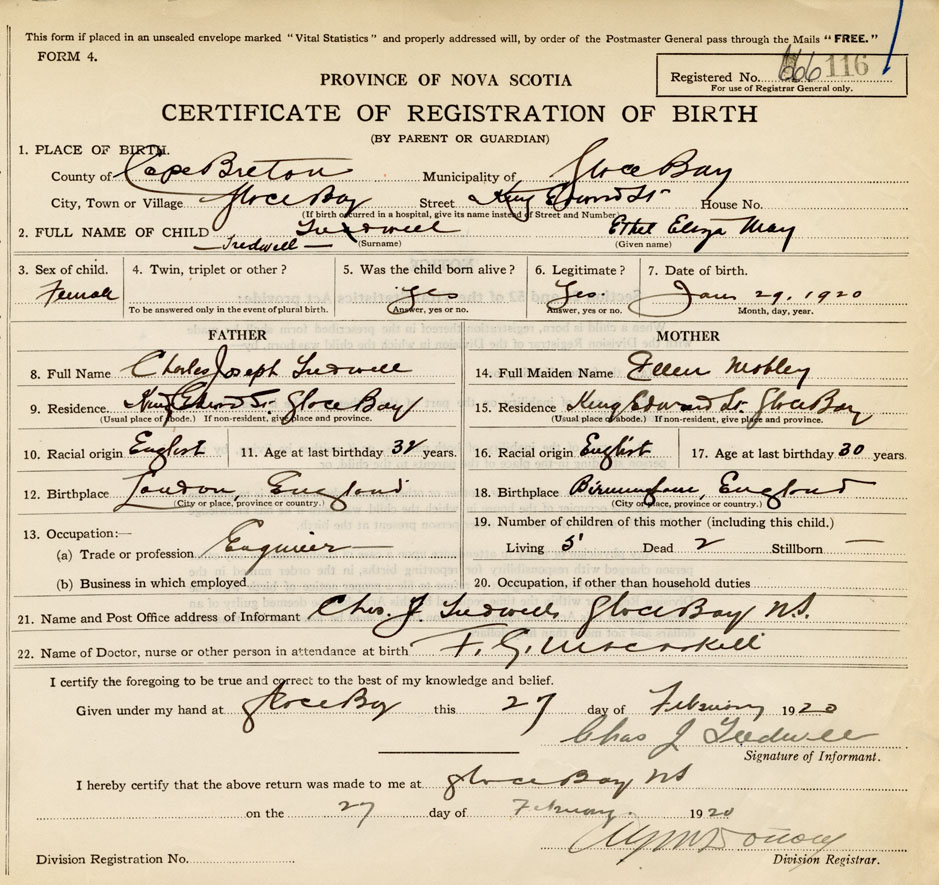 This form if placed in an unsealed envelope marked "Vital Statistics" and properly addressed will, by order of the Postmaster General pass through the Mails "FREE."
FORM 4.
Registered No. 666 116
For use of Registrar General only.
PROVINCE OF NOVA SCOTIA
CERTIFICATE OF REGISTRATION OF BIRTH
(BY PARENT OR GUARDIAN)
1. PLACE OF BIRTH.
County of Cape Breton Municipality of Glace Bay
City, Town or Village Glace Bay Street King Edward St House No.
(If birth occurred in a hospital, give its name instead of Street and Number)
2. FULL NAME OF CHILD Tredwell Ethel Eliza May
Tredwell (Surname) (Given name)
3. Sex of child. 4. Twin, triplet or other? 5. Was the child born alive? 6. Legitimate? 7. Date of birth.
Female Yes Yes Jan 29, 1920
To be answered only in the event of plural birth. Answer, yes or no. Answer, yes or no. Month, day, year.
FATHER MOTHER
8. Full Name Charles Joseph Tredwell 14. Full Maiden Name Ellen Mobley
9. Residence King Edward St. Glace Bay 15. Residence King Edward St. Glace Bay
(Usual place of abode.) If non-resident, give place and province. (Usual place of abode.) If non-resident, give place and province.
10. Racial origin English 11. Age at last birthday 32 years. 16. Racial origin English 17. Age at last birthday 30 years.
12. Birthplace London, England 18. Birthplace Birmingham, England
(City or place, province or country.) (City or place, province or country.)
13. Occupation:— 19. Number of children of this mother (including this child.)
(a) Trade or profession Engineer Living 5 Dead 2 Stillborn —
(b) Business in which employed 20. Occupation, if other than household duties
21. Name and Post Office address of Informant Chas. J. Tredwell Glace Bay N.S.
22. Name of Doctor, nurse or other person in attendance at birth F. G. MacAskill
I certify the foregoing to be true and correct to the best of my knowledge and belief.
Given under my hand at Glace Bay this 27 day of February 1920
Chas J Tredwell
Signature of Informant.
I hereby certify that the above return was made to me at Glace Bay NS
on the 27 day of February 1920
Division Registration No. Division Registrar.